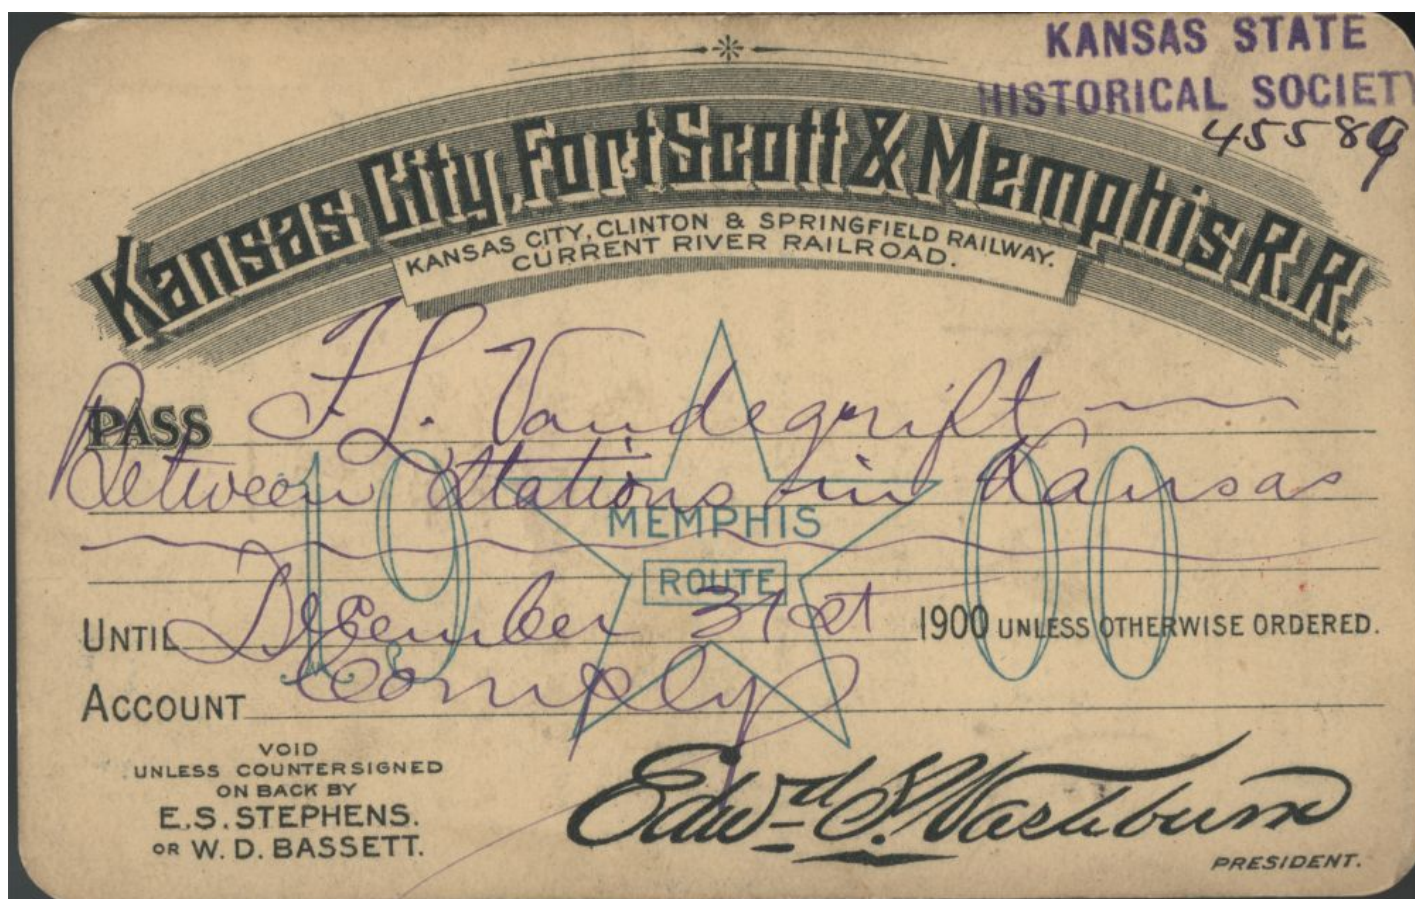 KANSAS STATE
HISTORICAL SOCIETY
45589
Kansas City, Fort Scott & Memphis R.R.
KANSAS CITY, CLINTON & SPRINGFIELD RAILWAY.
CURRENT RIVER RAILROAD.
PASS F L. Vandegrift
Between Stations in Kansas
1900
MEMPHIS
ROUTE
UNTIL December 31st 1900 UNLESS OTHERWISE ORDERED.
ACCOUNT Comply
VOID
UNLESS COUNTERSIGNED
ON BACK BY
E.S. STEPHENS.
OR W. D. BASSETT.
Edwd S. Washburn
PRESIDENT.